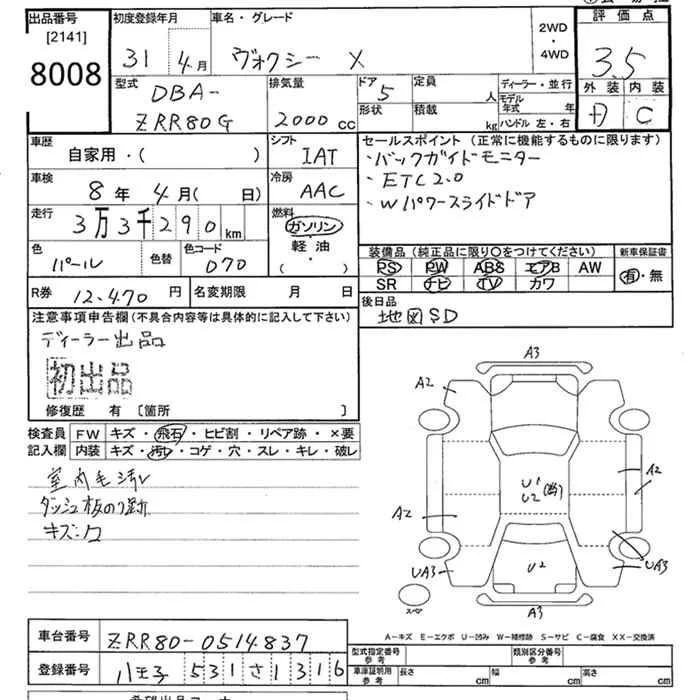 出品番号
[2141]
8008
初度登録年月
31 4月
車名・グレード
ヴォクシー X
2WD
・
4WD
評価点
3.5
外装 内装
D C
型式
DBA-
ZRR80G
排気量
2000 cc
ドア
5
形状
定員
人
積載
kg
ディーラー・並行
モデル年式 年
ハンドル 左・右
車歴
自家用・( )
シフト
IAT
車検
8年 4月( 日)
冷房
AAC
走行
3万3千290km
燃料
ガソリン
軽油
( ・ )
色
パール
色替
色コード
070
R券
12,470 円
名変期限 月 日
セールスポイント(正常に機能するものに限ります)
・バックガイドモニター
・ETC2.0
・Wパワースライドドア
装備品(純正品に限り○をつけてください)
PS PW ABS エアB AW
SR ナビ TV カワ
新車保証書
有・無
後日品
地図SD
注意事項申告欄(不具合内容等は具体的に記入して下さい)
ディーラー出品
初出品
修復歴 有 [箇所 ]
検査員
記入欄
FW キズ・飛石・ヒビ割・リペア跡・×要
内装 キズ・汚れ・コゲ・穴・スレ・キレ・破レ
室内毛汚レ
ダッシュ板のり跡
キズ
A3
A2
A2
U1
U2
A2
UA3
U2
UA3
A3
スペア
A-キズ E-エクボ U-凹み W-補修跡 S-サビ C-腐食 XX-交換済
車台番号
ZRR80-0514837
登録番号
八王子 531さ1316
型式指定番号
参考
類別区分番号
参考
車庫証明用
参考
長さ cm
幅 cm
高さ cm